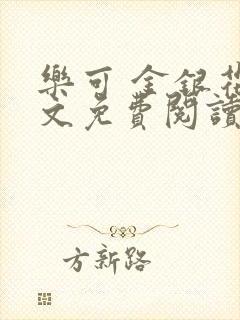 樂可 金銀花
文免費閱讀
方新路